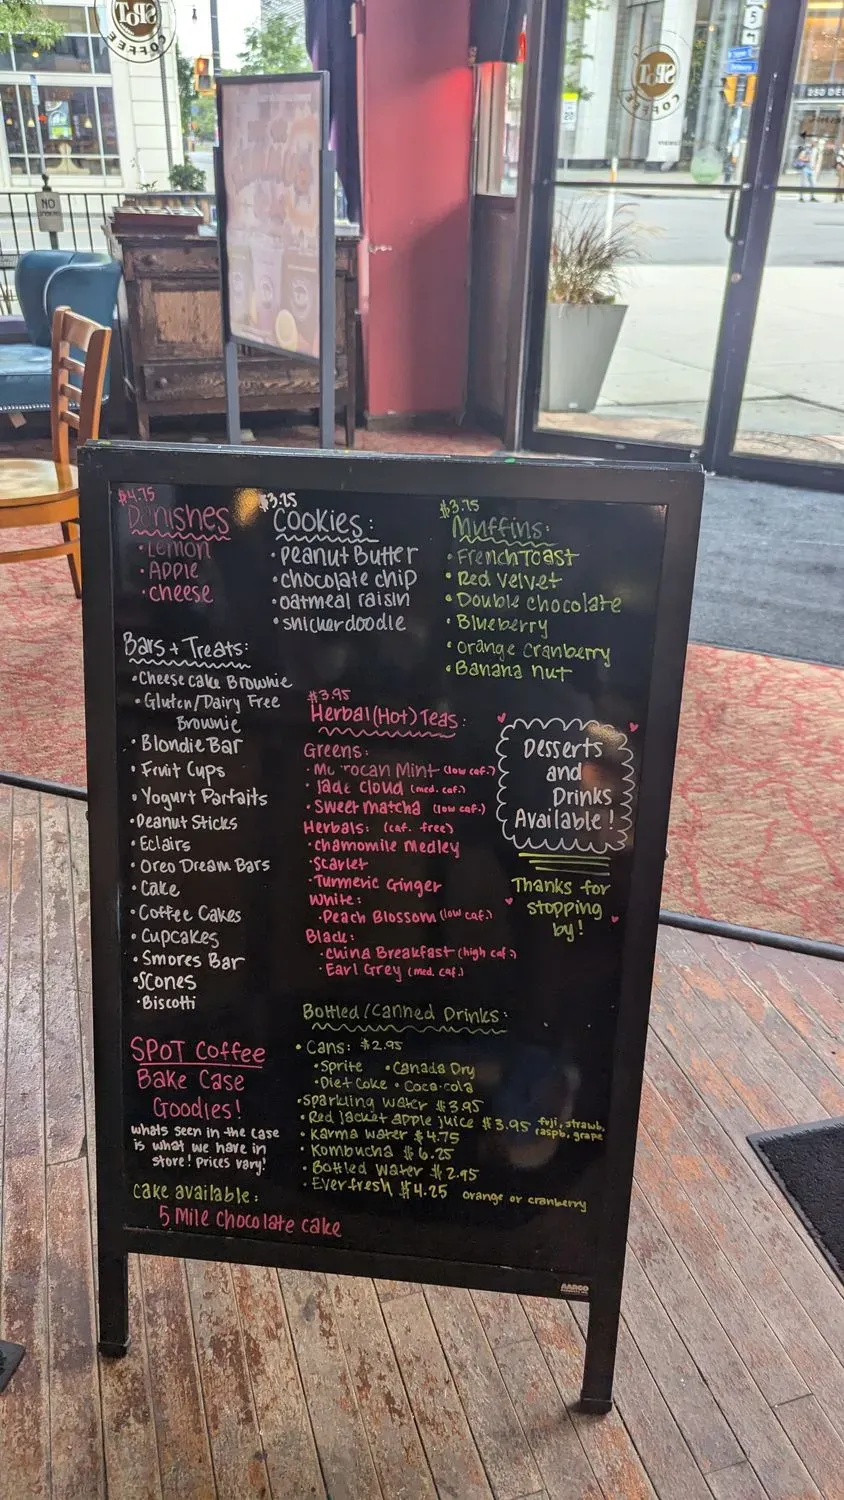 SPOT
COFFEE
SPOT
COFFEE
NO
5
250 DEL
$4.75
Danishes
• Lemon
• Apple
• cheese
$3.25
Cookies:
• Peanut Butter
• chocolate chip
• oatmeal raisin
• snickerdoodle
$3.75
Muffins:
• French Toast
• Red velvet
• Double chocolate
• Blueberry
• orange cranberry
• Banana nut
Bars + Treats:
• Cheese cake Brownie
• Gluten/Dairy Free
Brownie
• Blondie Bar
• Fruit Cups
• Yogurt Parfaits
• Peanut Sticks
• Eclairs
• Oreo Dream Bars
• Cake
• Coffee Cakes
• Cupcakes
• Smores Bar
• Scones
• Biscotti
$3.95
Herbal (Hot) Teas:
Greens:
• Morrocan Mint (low caf.)
• Jade Cloud (med. caf.)
• Sweet Matcha (low caf.)
Herbals: (caf. free)
• chamomile Medley
• Scarlet
• Turmeric Ginger
White:
• Peach Blossom (low caf.)
Black:
• China Breakfast (high caf.)
• Earl Grey (med. caf.)
Desserts
and
Drinks
Available!
Thanks for
stopping
by!
Bottled/Canned Drinks:
• Cans: $2.95
• Sprite • Canada Dry
• Diet Coke • Coca-cola
• Sparkling water $3.95
• Red Jacket apple juice $3.95 fuji, strawb,
raspb, grape
• Karma water $4.75
• Kombucha $6.25
• Bottled water $2.95
• Everfresh $4.25 orange or cranberry
SPOT Coffee
Bake Case
Goodies!
whats seen in the case
is what we have in
store! Prices vary!
cake available:
5 Mile chocolate cake
AARCO